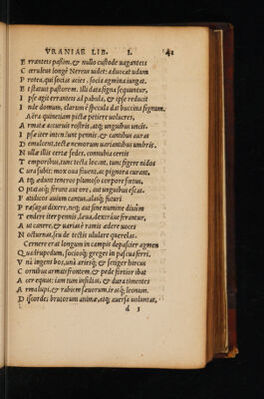 VRANIAE LIB. I. 41
E rrantens passim, & nullo custode uagantens
C œruleus longè Nereus uidet: aduocat udum
P rotea, qui socias acies, socia agmina iungat.
E t statuit pastorem. illi data signa sequuntur,
I pse agit errantens ad pabula, & ipse reducit
I nde domum, clarum è specula dat buccina signum.
Aëra quinetiam pictæ petiere uolucres,
A rmatæ accuruis rostris, atq; unguibus uncis.
I pse iter inueniunt pennis, & cantibus aurat
D emulcent, tectæ nemorum uariantibus umbris.
N ullæ illis certæ sedes, connubia certis
T emporibus, tunc tecta locant. tunc figere nidos
C ura subit: mox oua fouent, ac pignora curant.
A tq; edunt tenero plumoso corpore fœtus,
O ptaq; aiq; ferunt aut ore, aut unguibus escas.
F atidicos auium cantus, alasq; futuri
P ræsagas dicere, neq; aut sine numine diuûm
T endere iter pennis, leua, dextraue ferantur,
A ut canere, & uaria è ramis ædere uoces
N octurnas, seu de tectis ululare querelas.
Cernere erat longum in campis depascier agmen
Q uadrupedum, sociosq; greges in pascua ferri.
V nà ingens bos, unà ariesq; & senger hircus
C ornibus armati frontem, & pede fortior ibat
A cer equus; iam tum insidias, & dura timentes
A rma lupi, & rabiem sæuorum, iræq; leonum.
D iscordes brutorum animæ, atq; auersa uoluntas,
d 1